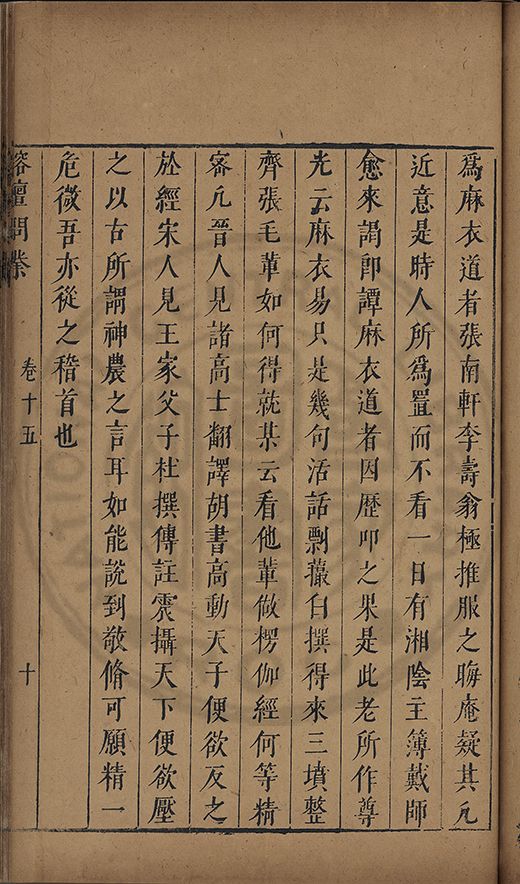 爲麻衣道者張南軒李壽翁極推服之晦庵疑其凡
近意是時人所爲置而不看一日有湘陰主簿戴師
愈來謁卽譚麻衣道者因歷叩之果是此老所作尊
光云麻衣易只是幾句活話剽㩴白撰得來三墳整
齊張毛軰如何得就某云看他軰做楞伽經何等精
審凡晉人見諸高士翻譯胡書高動天子便欲反之
於經宋人見王家父子杜撰傳註震攝天下便欲壓
之以古所謂神農之言耳如能說到敬脩可願精一
危微吾亦從之稽首也
榕壇問業
卷十五
十